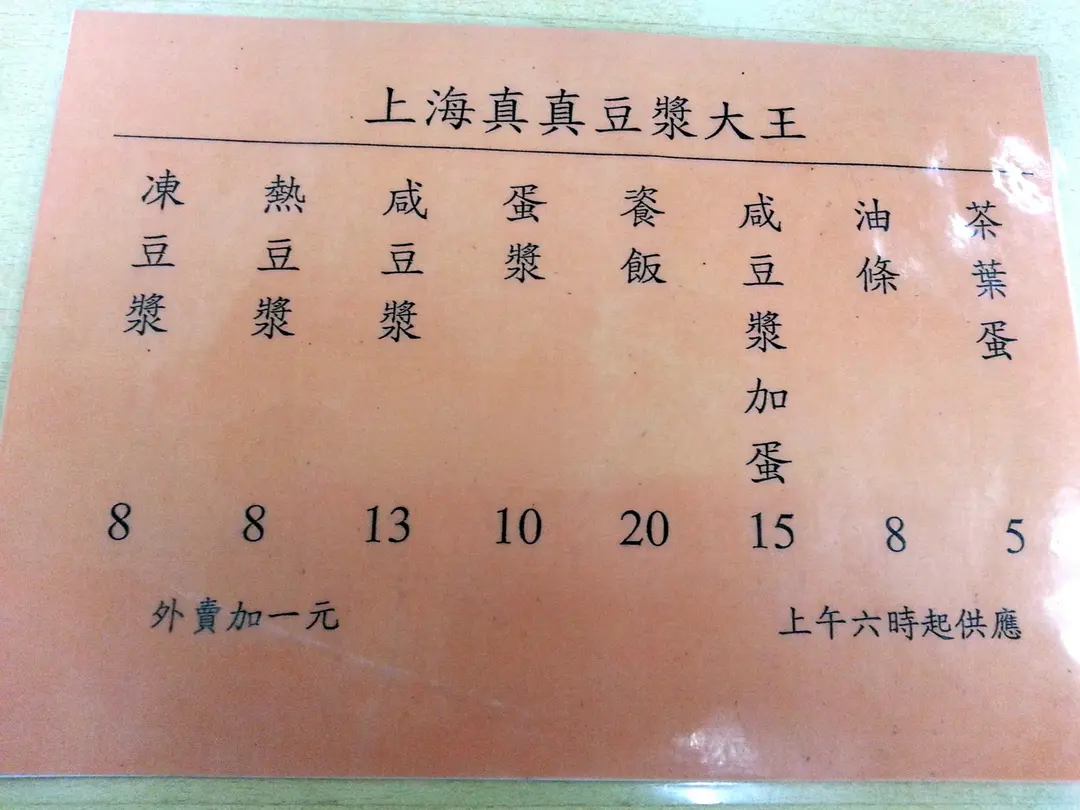 上海真真豆漿大王
凍豆漿
熱豆漿
咸豆漿
蛋漿
餈飯
咸豆漿加蛋
油條
茶葉蛋
8
8
13
10
20
15
8
5
外賣加一元
上午六時起供應